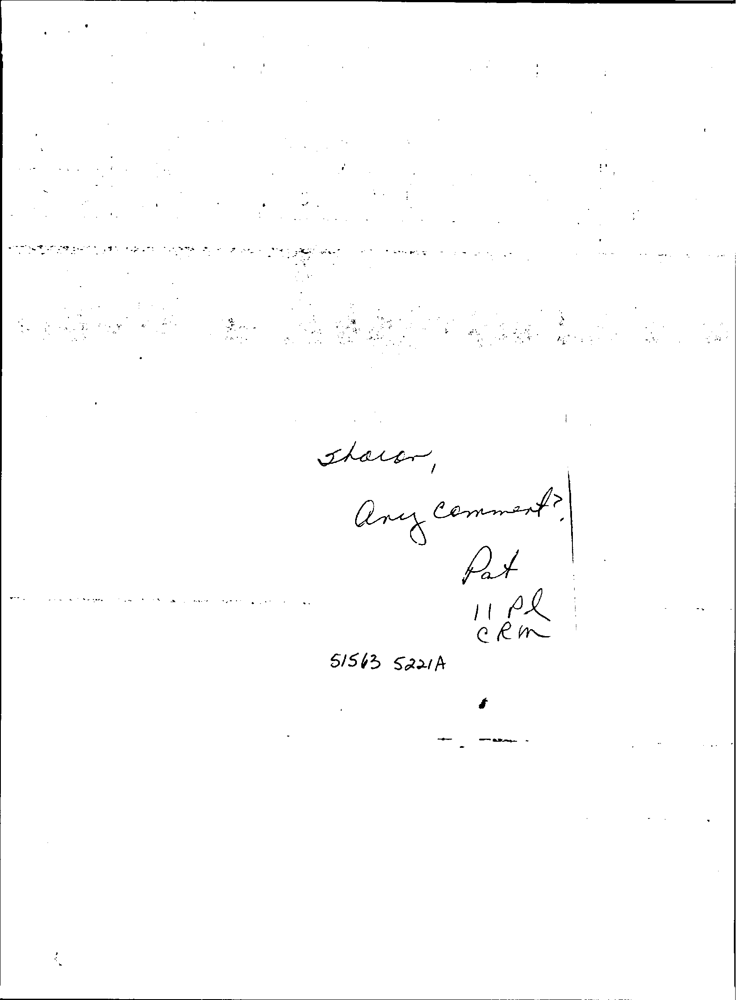 Sharon,
Any comment?
Pat
11 Pl
CRM
51563 5221A